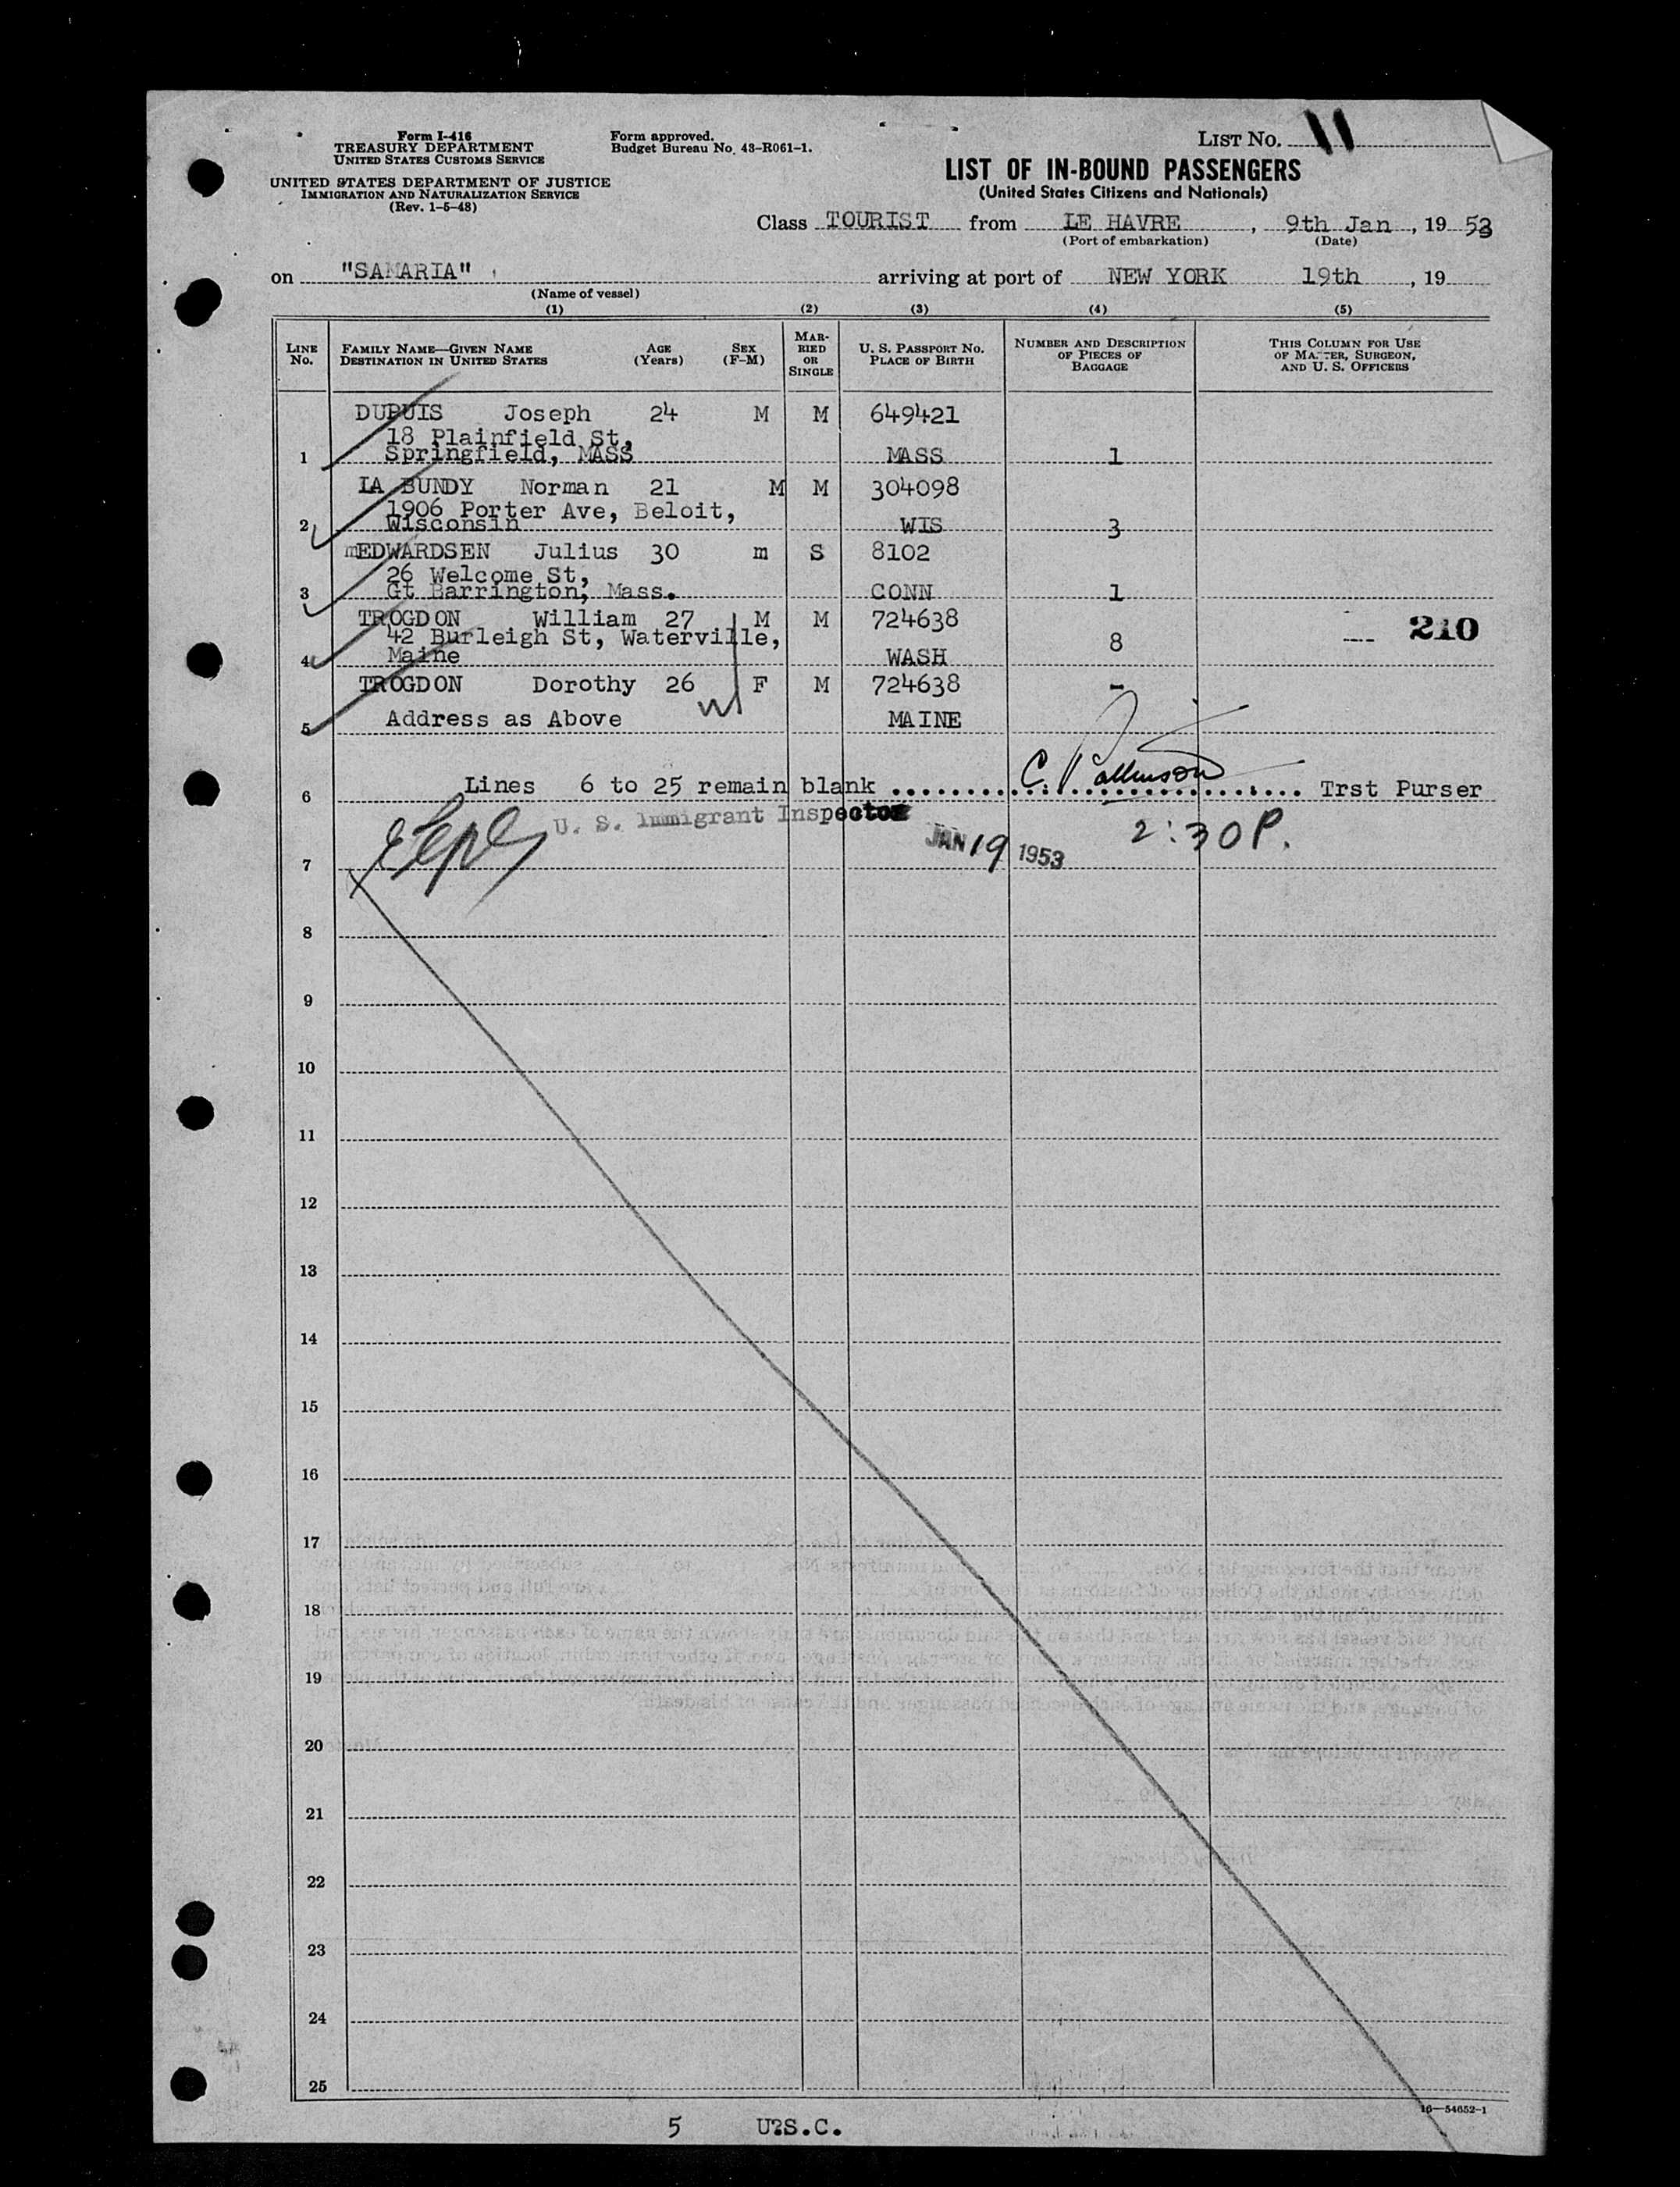 Form I-416
TREASURY DEPARTMENT
UNITED STATES CUSTOMS SERVICE
UNITED STATES DEPARTMENT OF JUSTICE
IMMIGRATION AND NATURALIZATION SERVICE
(Rev. 1-5-48)
Form approved.
Budget Bureau No. 43-R061-1.
LIST NO. 11
LIST OF IN-BOUND PASSENGERS
(United States Citizens and Nationals)
Class TOURIST from LE HAVRE, 9th Jan, 19 53
(Port of embarkation) (Date)
on "SAMARIA" arriving at port of NEW YORK 19th, 19
(Name of vessel)
(1) (2) (3) (4) (5)
LINE NO. FAMILY NAME—GIVEN NAME DESTINATION IN UNITED STATES AGE (Years) SEX (F-M) MARRIED OR SINGLE U. S. PASSPORT NO. PLACE OF BIRTH NUMBER AND DESCRIPTION OF PIECES OF BAGGAGE THIS COLUMN FOR USE OF MASTER, SURGEON, AND U. S. OFFICERS
DUPUIS Joseph 24 M M 649421
18 Plainfield St,
1 Springfield, MASS MASS 1
LA BUNDY Norman 21 M M 304098
1906 Porter Ave, Beloit,
2 Wisconsin WIS 3
mEDWARDSEN Julius 30 m S 8102
26 Welcome St,
3 Gt Barrington, Mass. CONN 1
TROGDON William 27 M M 724638 210
42 Burleigh St, Waterville, 8
4 Maine WASH
TROGDON Dorothy 26 F M 724638 -
5 Address as Above MAINE
6 Lines 6 to 25 remain blank Trst Purser
U. S. Immigrant Inspector
JAN 19 1953 2:30 P.
7
8
9
10
11
12
13
14
15
16
17
18
19
20
21
22
23
24
25
16—54652-1
5 U?S.C.